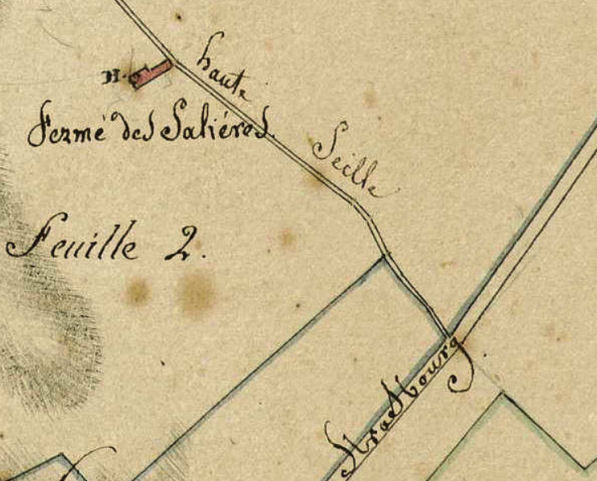 haute
H.
Fermé des Saliéres.
Seille
Feuille 2.
Strasbourg